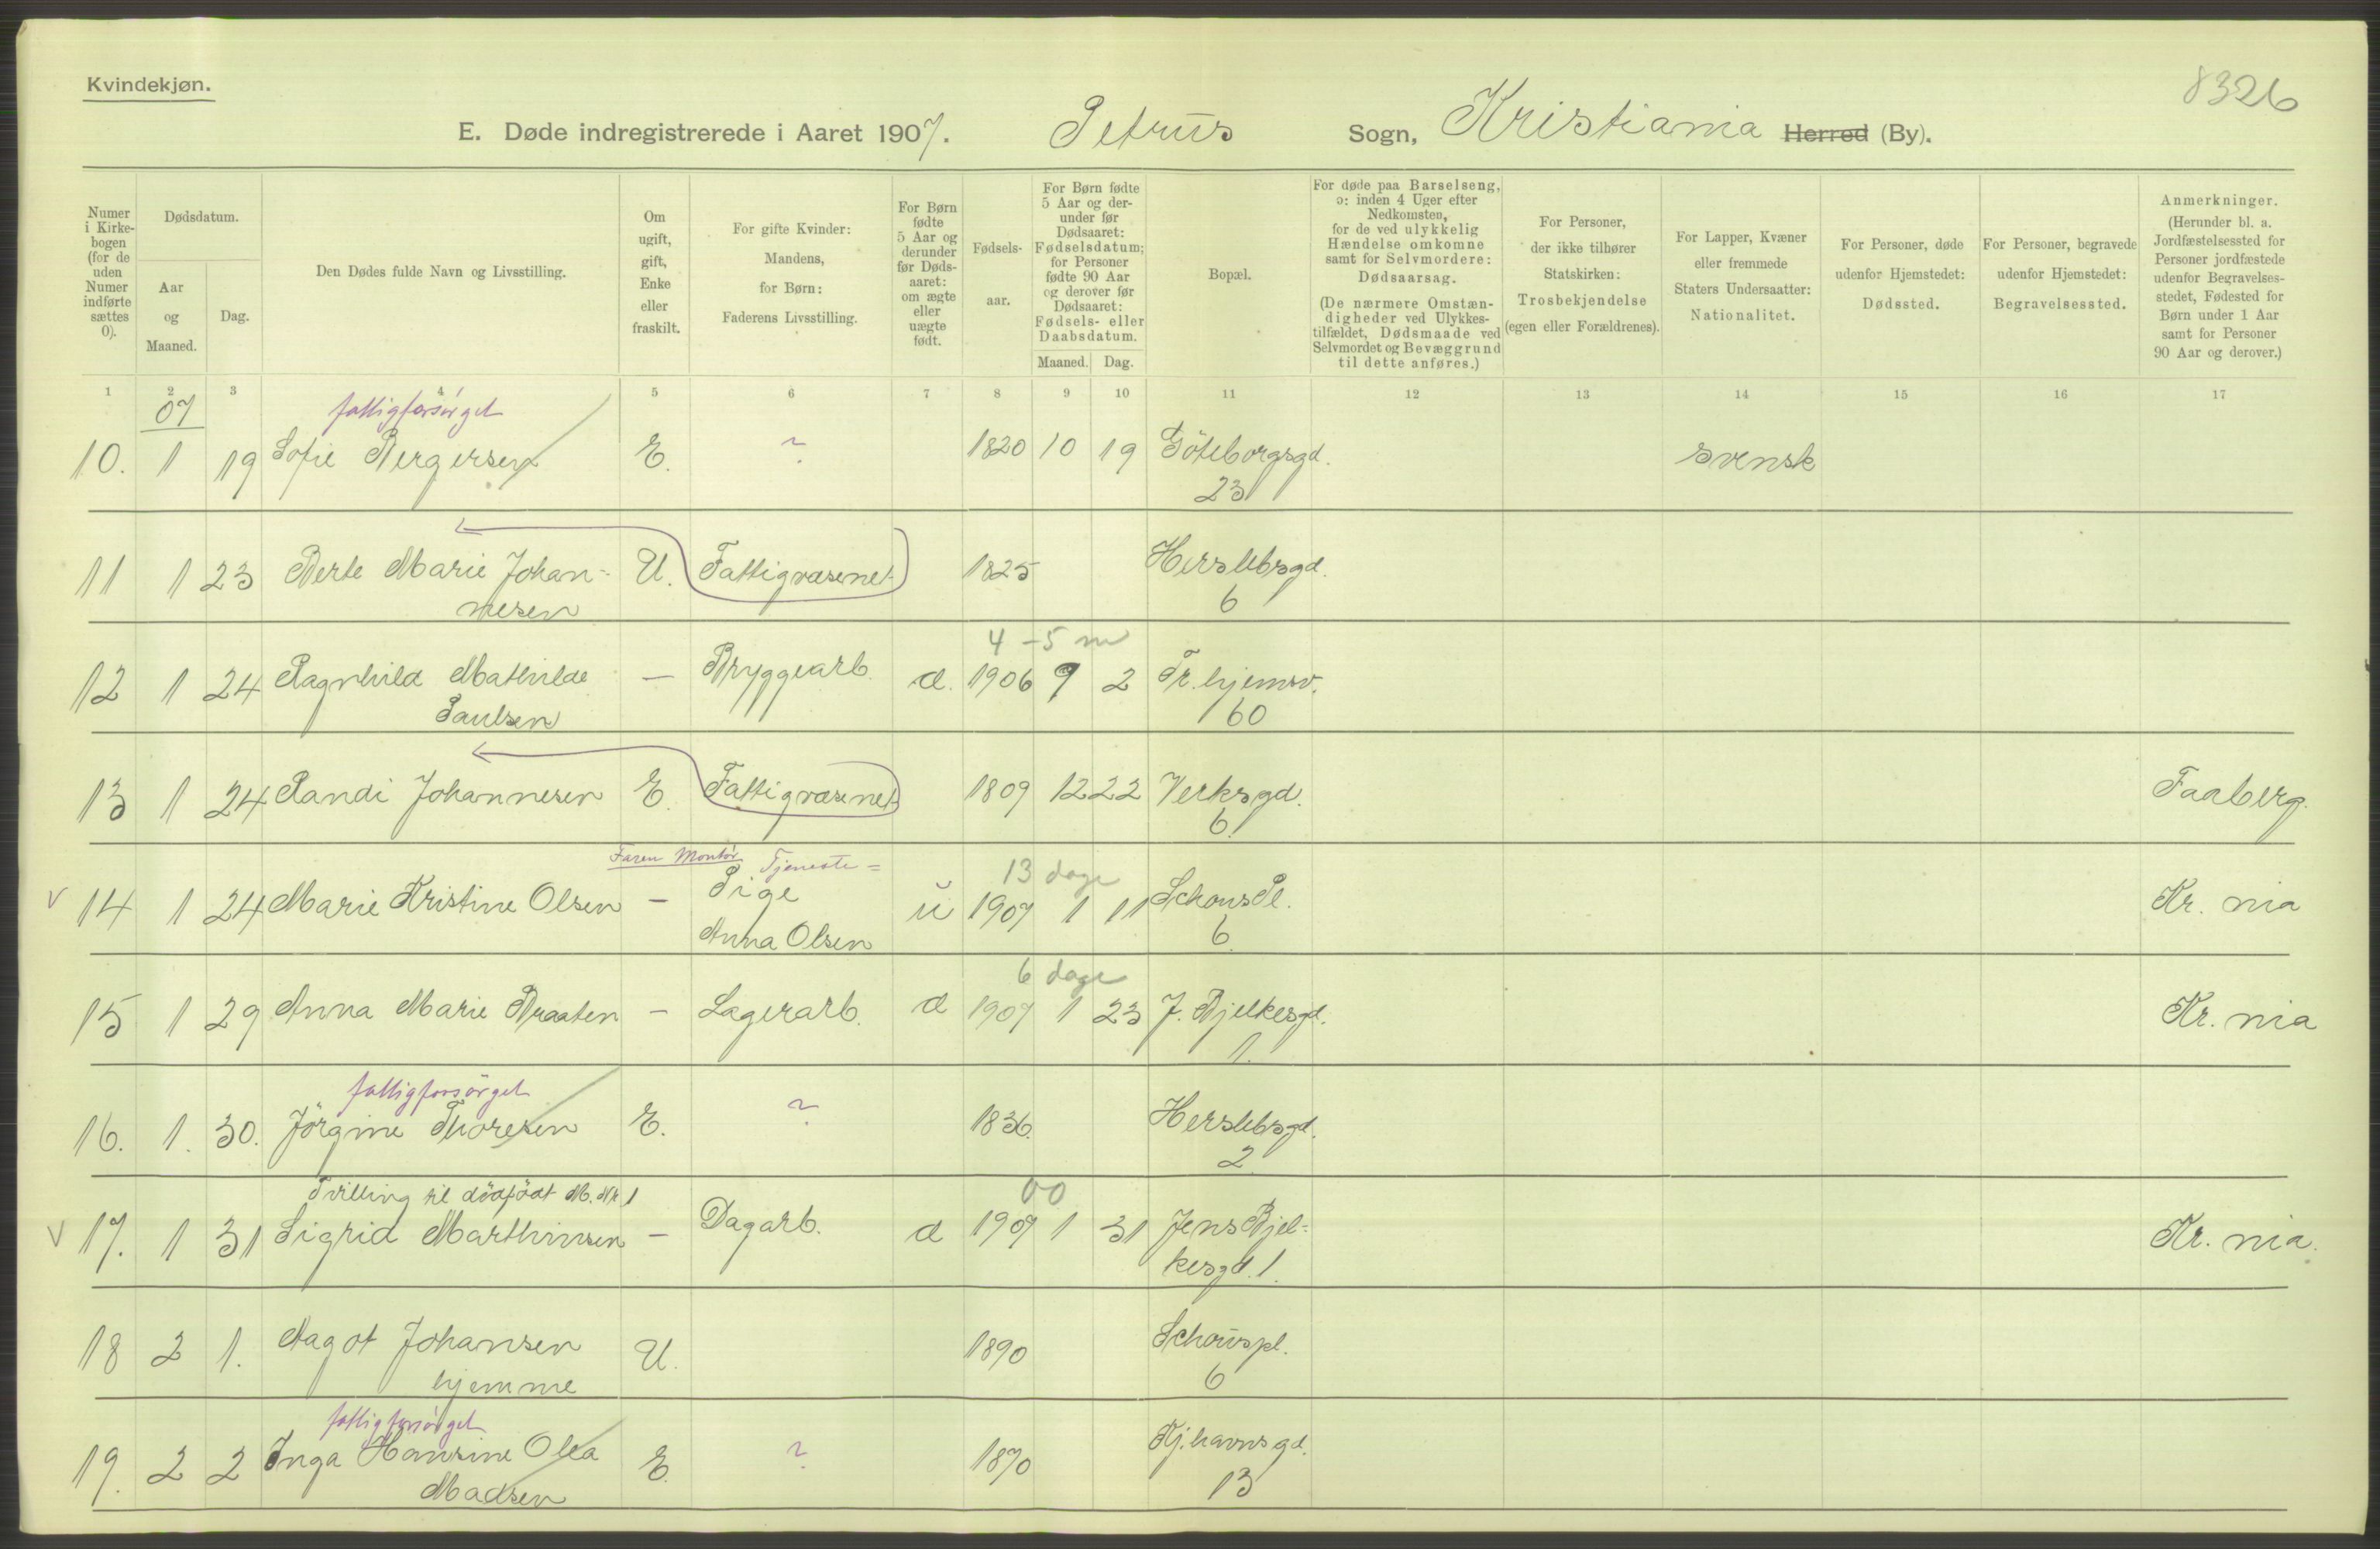 Kvindekjøn.
8326
E. Døde indregistrerede i Aaret 1907. Petrus Sogn, Kristiania Herred (By).
Numer i Kirkebogen (for de uden Numer indførte sættes 0).
Dødsdatum.
Aar og Maaned.
Dag.
Den Dødes fulde Navn og Livsstilling.
Om ugift, gift, Enke eller fraskilt.
For gifte Kvinder: Mandens, for Børn: Faderens Livsstilling.
For Børn fødte 5 Aar og derunder før Dødsaaret: om ægte eller uægte født.
Fødselsaar.
For Børn fødte 5 Aar og derunder før Dødsaaret: Fødselsdatum; for Personer fødte 90 Aar og derover før Dødsaaret: Fødsels- eller Daabsdatum.
Maaned. Dag.
Bopæl.
For døde paa Barselseng, ɔ: inden 4 Uger efter Nedkomsten, for de ved ulykkelig Hændelse omkomne samt for Selvmordere: Dødsaarsag.
(De nærmere Omstændigheder ved Ulykkestilfældet, Dødsmaade ved Selvmordet og Bevæggrund til dette anføres.)
For Personer, der ikke tilhører Statskirken: Trosbekjendelse (egen eller Forældrenes).
For Lapper, Kvæner eller fremmede Staters Undersaatter: Nationalitet.
For Personer, døde udenfor Hjemstedet: Dødssted.
For Personer, begravede udenfor Hjemstedet: Begravelsessted.
Anmerkninger.
(Herunder bl. a. Jordfæstelsessted for Personer jordfæstede udenfor Begravelsesstedet, Fødested for Børn under 1 Aar samt for Personer 90 Aar og derover.)
1 2 3 4 5 6 7 8 9 10 11 12 13 14 15 16 17
07 fattigforsörget
10. 1 19 Sofie Bergersen E. ? 1820 10 19 Göteborgsgd. svensk
23
11 1 23 Berte Marie Johan- U. Fattigvæsenet 1825 Herslebsgd.
nesen 6
4-5 m
12 1 24 Ragnhild Mathilde — Bryggearb. d. 1906 9 2 Tr.hjemsv.
Paulsen 60
13 1 24 Randi Johannesen E. Fattigvæsenet 1809 12 22 Verksgd. Faaberg.
6.
Faren Montör Tjeneste= 13 dage
v 14 1 24 Marie Kristine Olsen — Pige u 1907 1 11 Schous Pl. Kr. nia
Anna Olsen 6.
6 dage
15 1 29 Anna Marie Braaten — Lagerarb. d 1907 1 23 J. Bjelkesgd. Kr. nia
1.
fattigforsörget
16. 1. 30. Jörgine Thoresen E. ? 1836. Herslebsgd.
2
Tvilling til dödfödt M. Nr 1 00
v 17. 1 31 Sigrid Marthinsen — Dagarb. d 1907 1 31 Jens Bjel- Kr. nia.
kesgd. 1.
18 2 1. Aagot Johansen U. 1890 Schouspl.
hjemme 6
fattigforsörget
19. 2 2 Inga Hansine Olea E. ? 1870 Kj.havnsgd.
Madsen 13